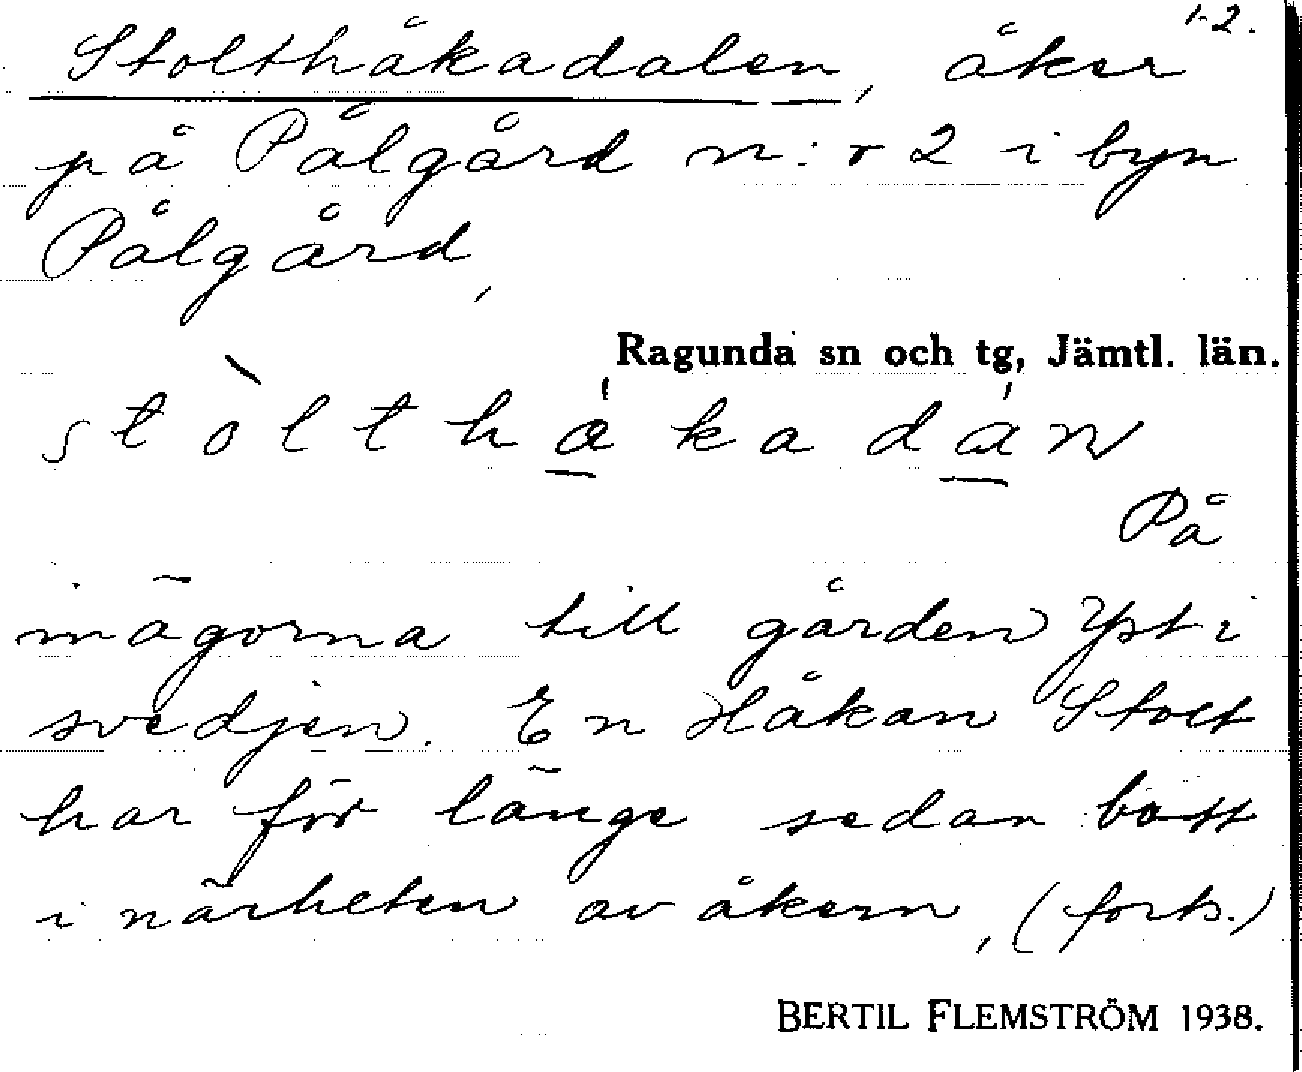 1-2.
Stolthåkadalen, åker
på Pålgård n:r 2 i byn
Pålgård,
Ragunda sn och tg, Jämtl. län.
stòlthákadán
På
mägorna till gården Yst i
svedjen. En Håkan Stolt
har för länge sedan bott
i närheten av åkern, (forts.)
BERTIL FLEMSTRÖM 1938.